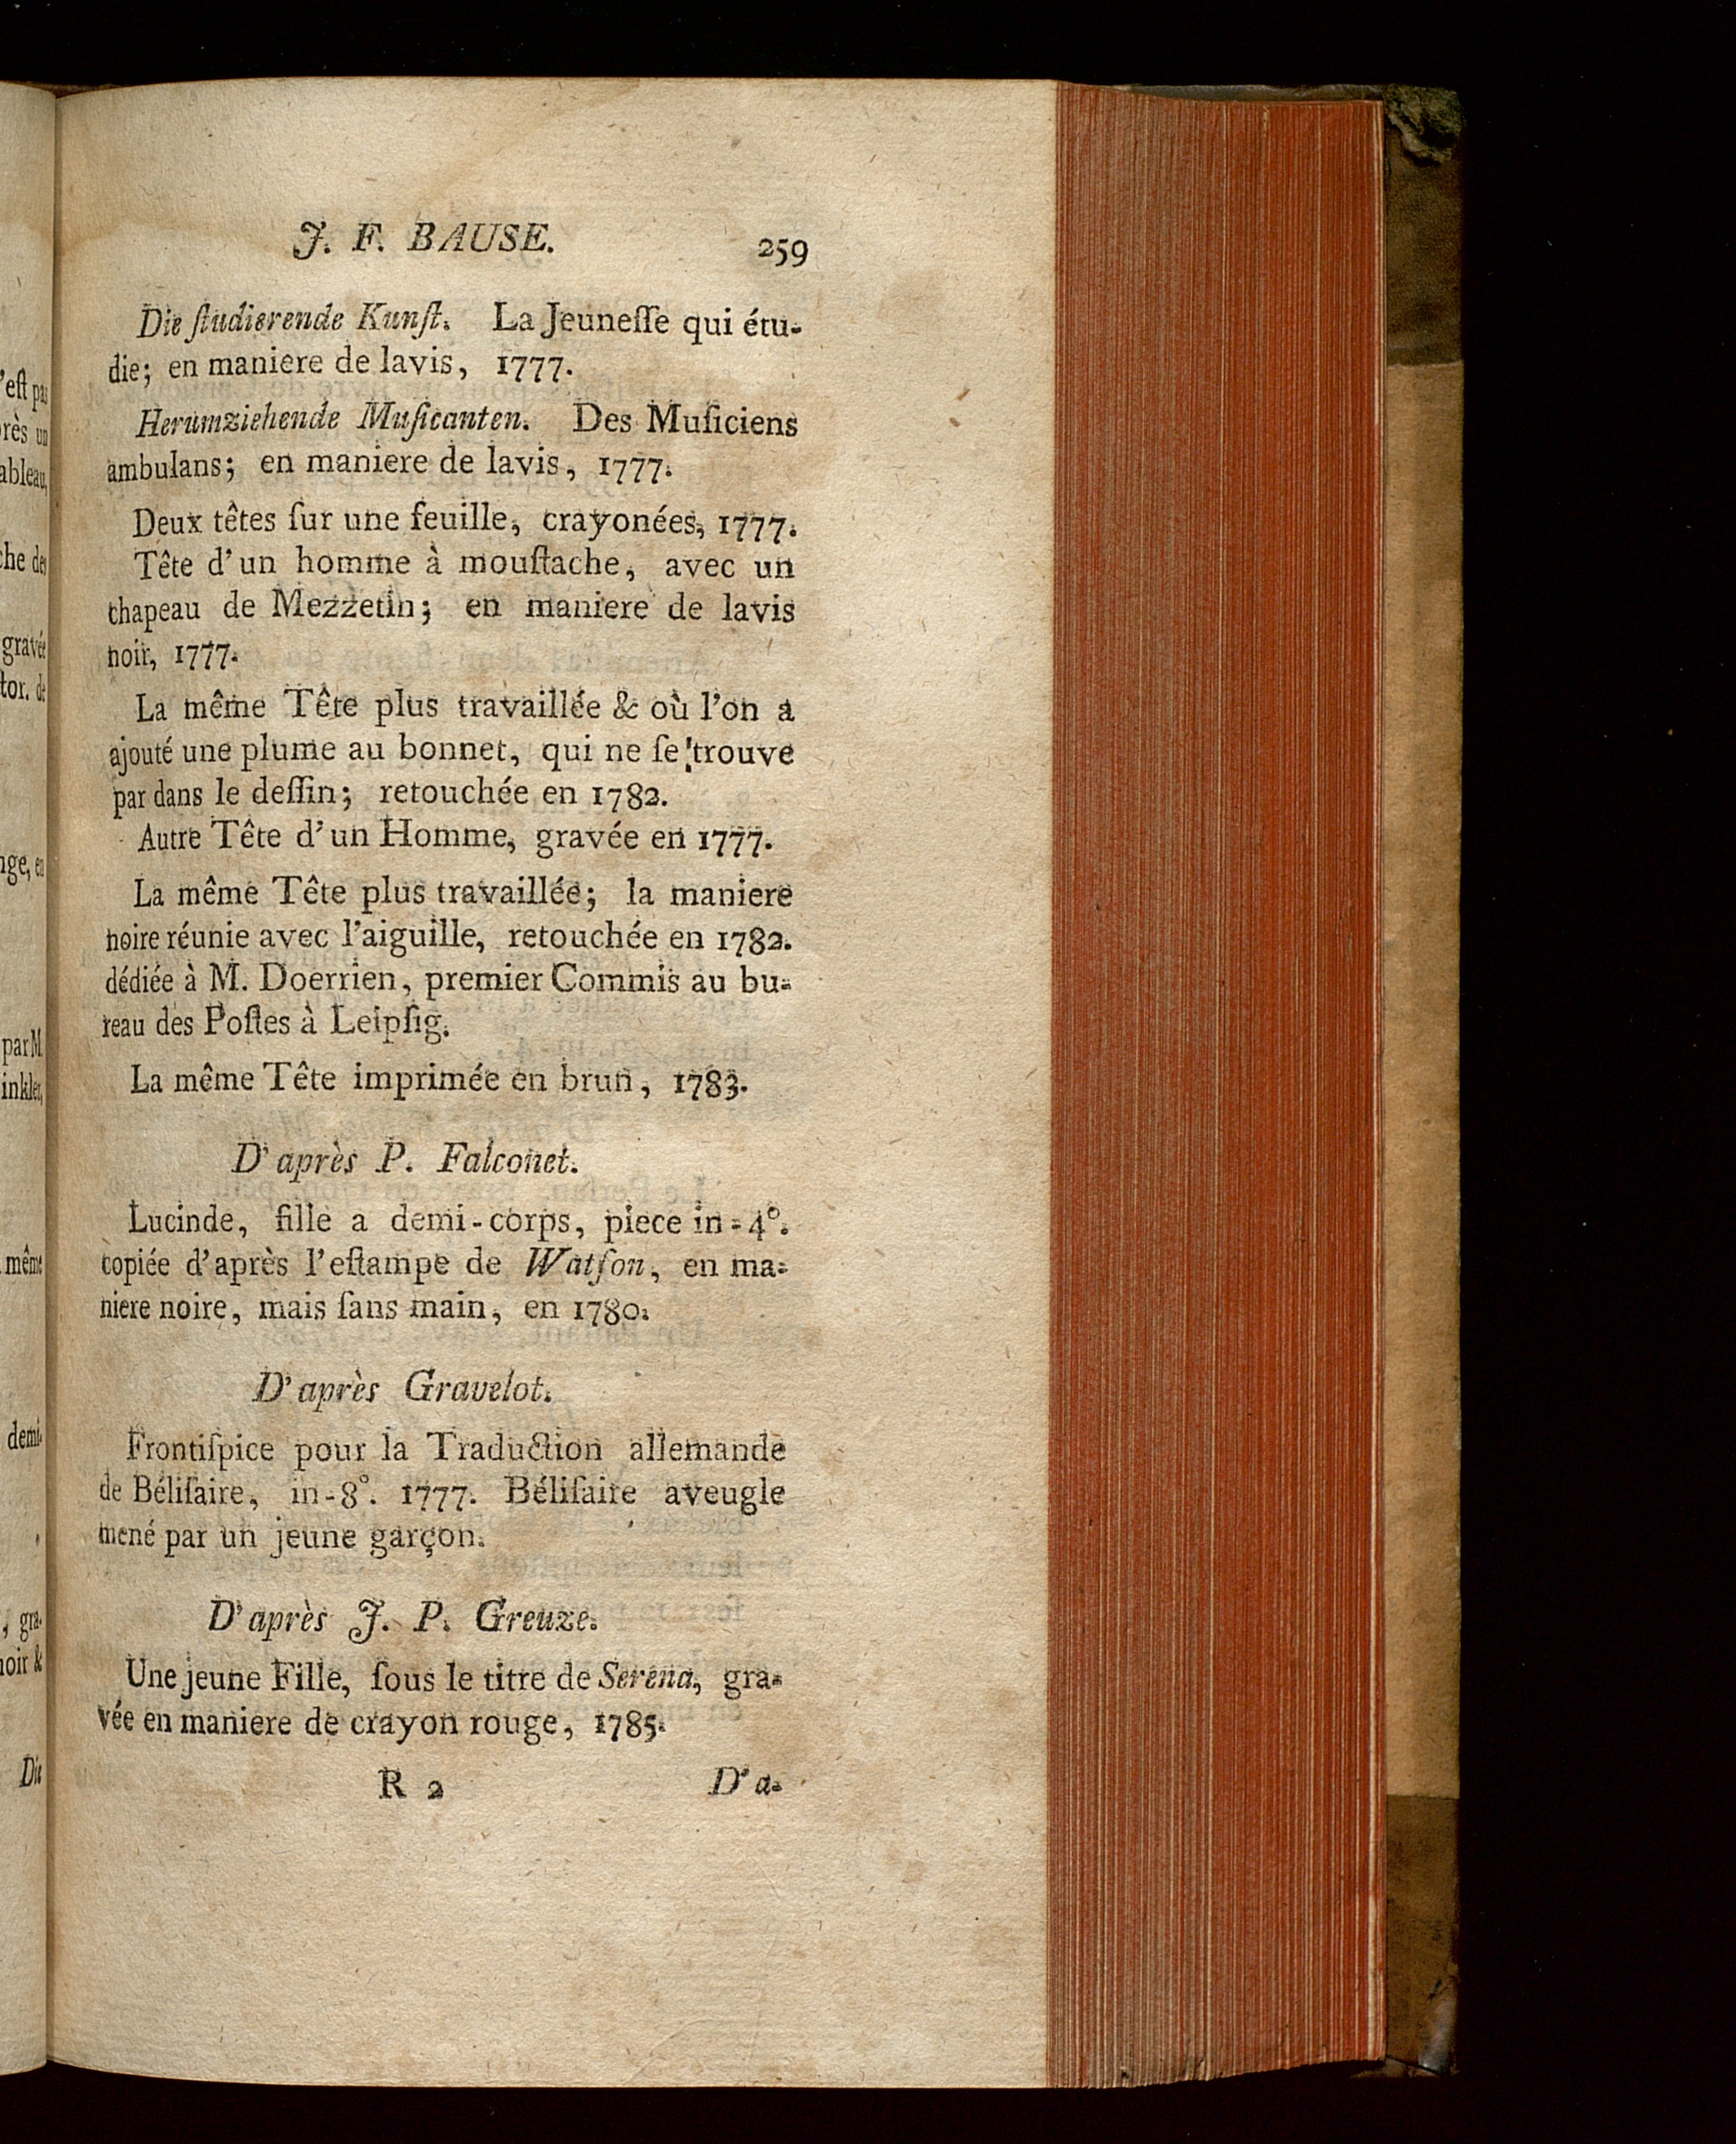 J. F. BAUSE. 259
Die ſtudierende Kunſt. La Jeuneſſe qui étu-
die; en maniere de lavis, 1777.
Herumziehende Muſicanten. Des Muſiciens
ambulans; en maniere de lavis, 1777.
Deux têtes ſur une feuille, crayonées, 1777.
Tête d'un homme à mouſtache, avec un
chapeau de Mezzetin; en maniere de lavis
noir, 1777.
La même Tête plus travaillée & où l'on a
ajouté une plume au bonnet, qui ne ſe trouve
par dans le deſſin; retouchée en 1782.
Autre Tête d'un Homme, gravée en 1777.
La même Tête plus travaillée; la maniere
noire réunie avec l'aiguille, retouchée en 1782.
dédiée à M. Doerrien, premier Commis au bu-
reau des Poſtes à Leipſig.
La même Tête imprimée en brun, 1783.
D'après P. Falconet.
Lucinde, fille a demi-corps, piece in-4°.
copiée d'après l'eſtampe de Watſon, en ma-
niere noire, mais ſans main, en 1780.
D'après Gravelot.
Frontiſpice pour la Traduction allemande
de Béliſaire, in-8°. 1777. Béliſaire aveugle
mené par un jeune garçon.
D'après J. P. Greuze.
Une jeune Fille, ſous le titre de Serena, gra-
vée en maniere de crayon rouge, 1785.
R 2 D'a-